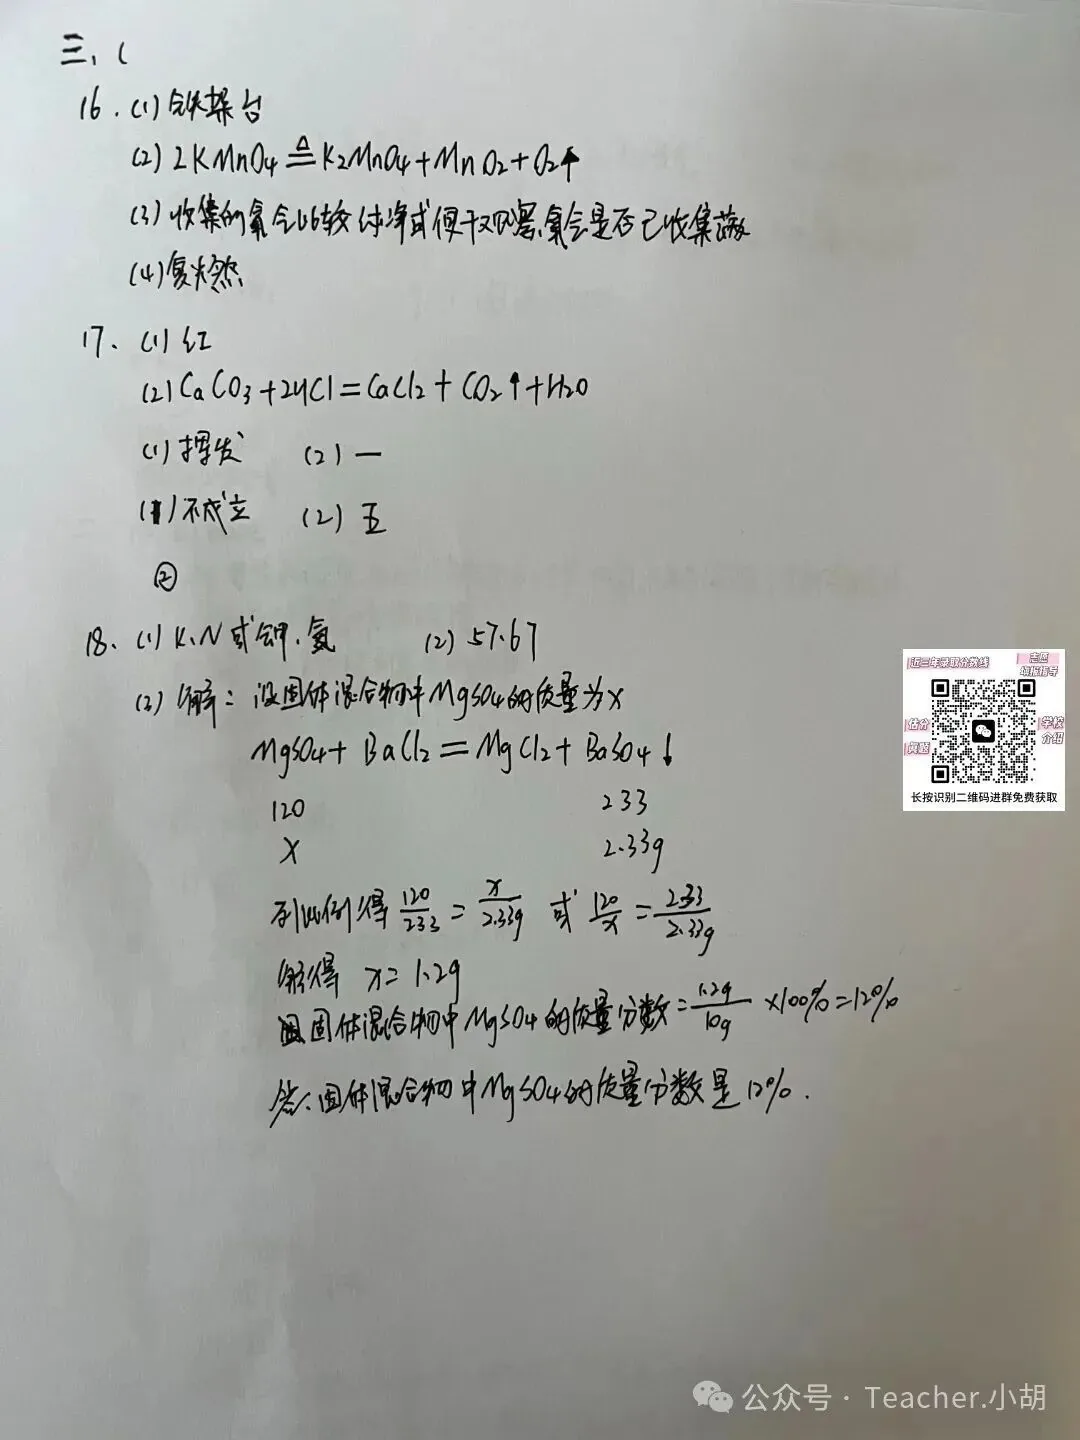 三、(
16. (1) 铁架台
(2) 2KMnO4 ≜ K2MnO4 + MnO2 + O2↑
(3) 收集的氧气比较纯净或便于观察氧气是否已收集满
(4) 复燃
17. (1) 红
(2) CaCO3 + 2HCl = CaCl2 + CO2↑ + H2O
(1) 挥发 (2) 一
(1) 不成立 (2) 五
②
18. (1) K、N 或钾、氮 (2) 57.67
(3) 解：设固体混合物中MgSO4的质量为x
MgSO4 + BaCl2 = MgCl2 + BaSO4↓
120 233
x 2.33g
列比例得 120/233 = x/2.33g 或 120/x = 233/2.33g
解得 x = 1.2g
固体混合物中MgSO4的质量分数 = 1.2g/10g ×100% = 12%
答：固体混合物中MgSO4的质量分数是12%.
近三年录取分数线
志愿
填报指导
估分
真题
学校
介绍
长按识别二维码进群免费获取
公众号 · Teacher.小胡